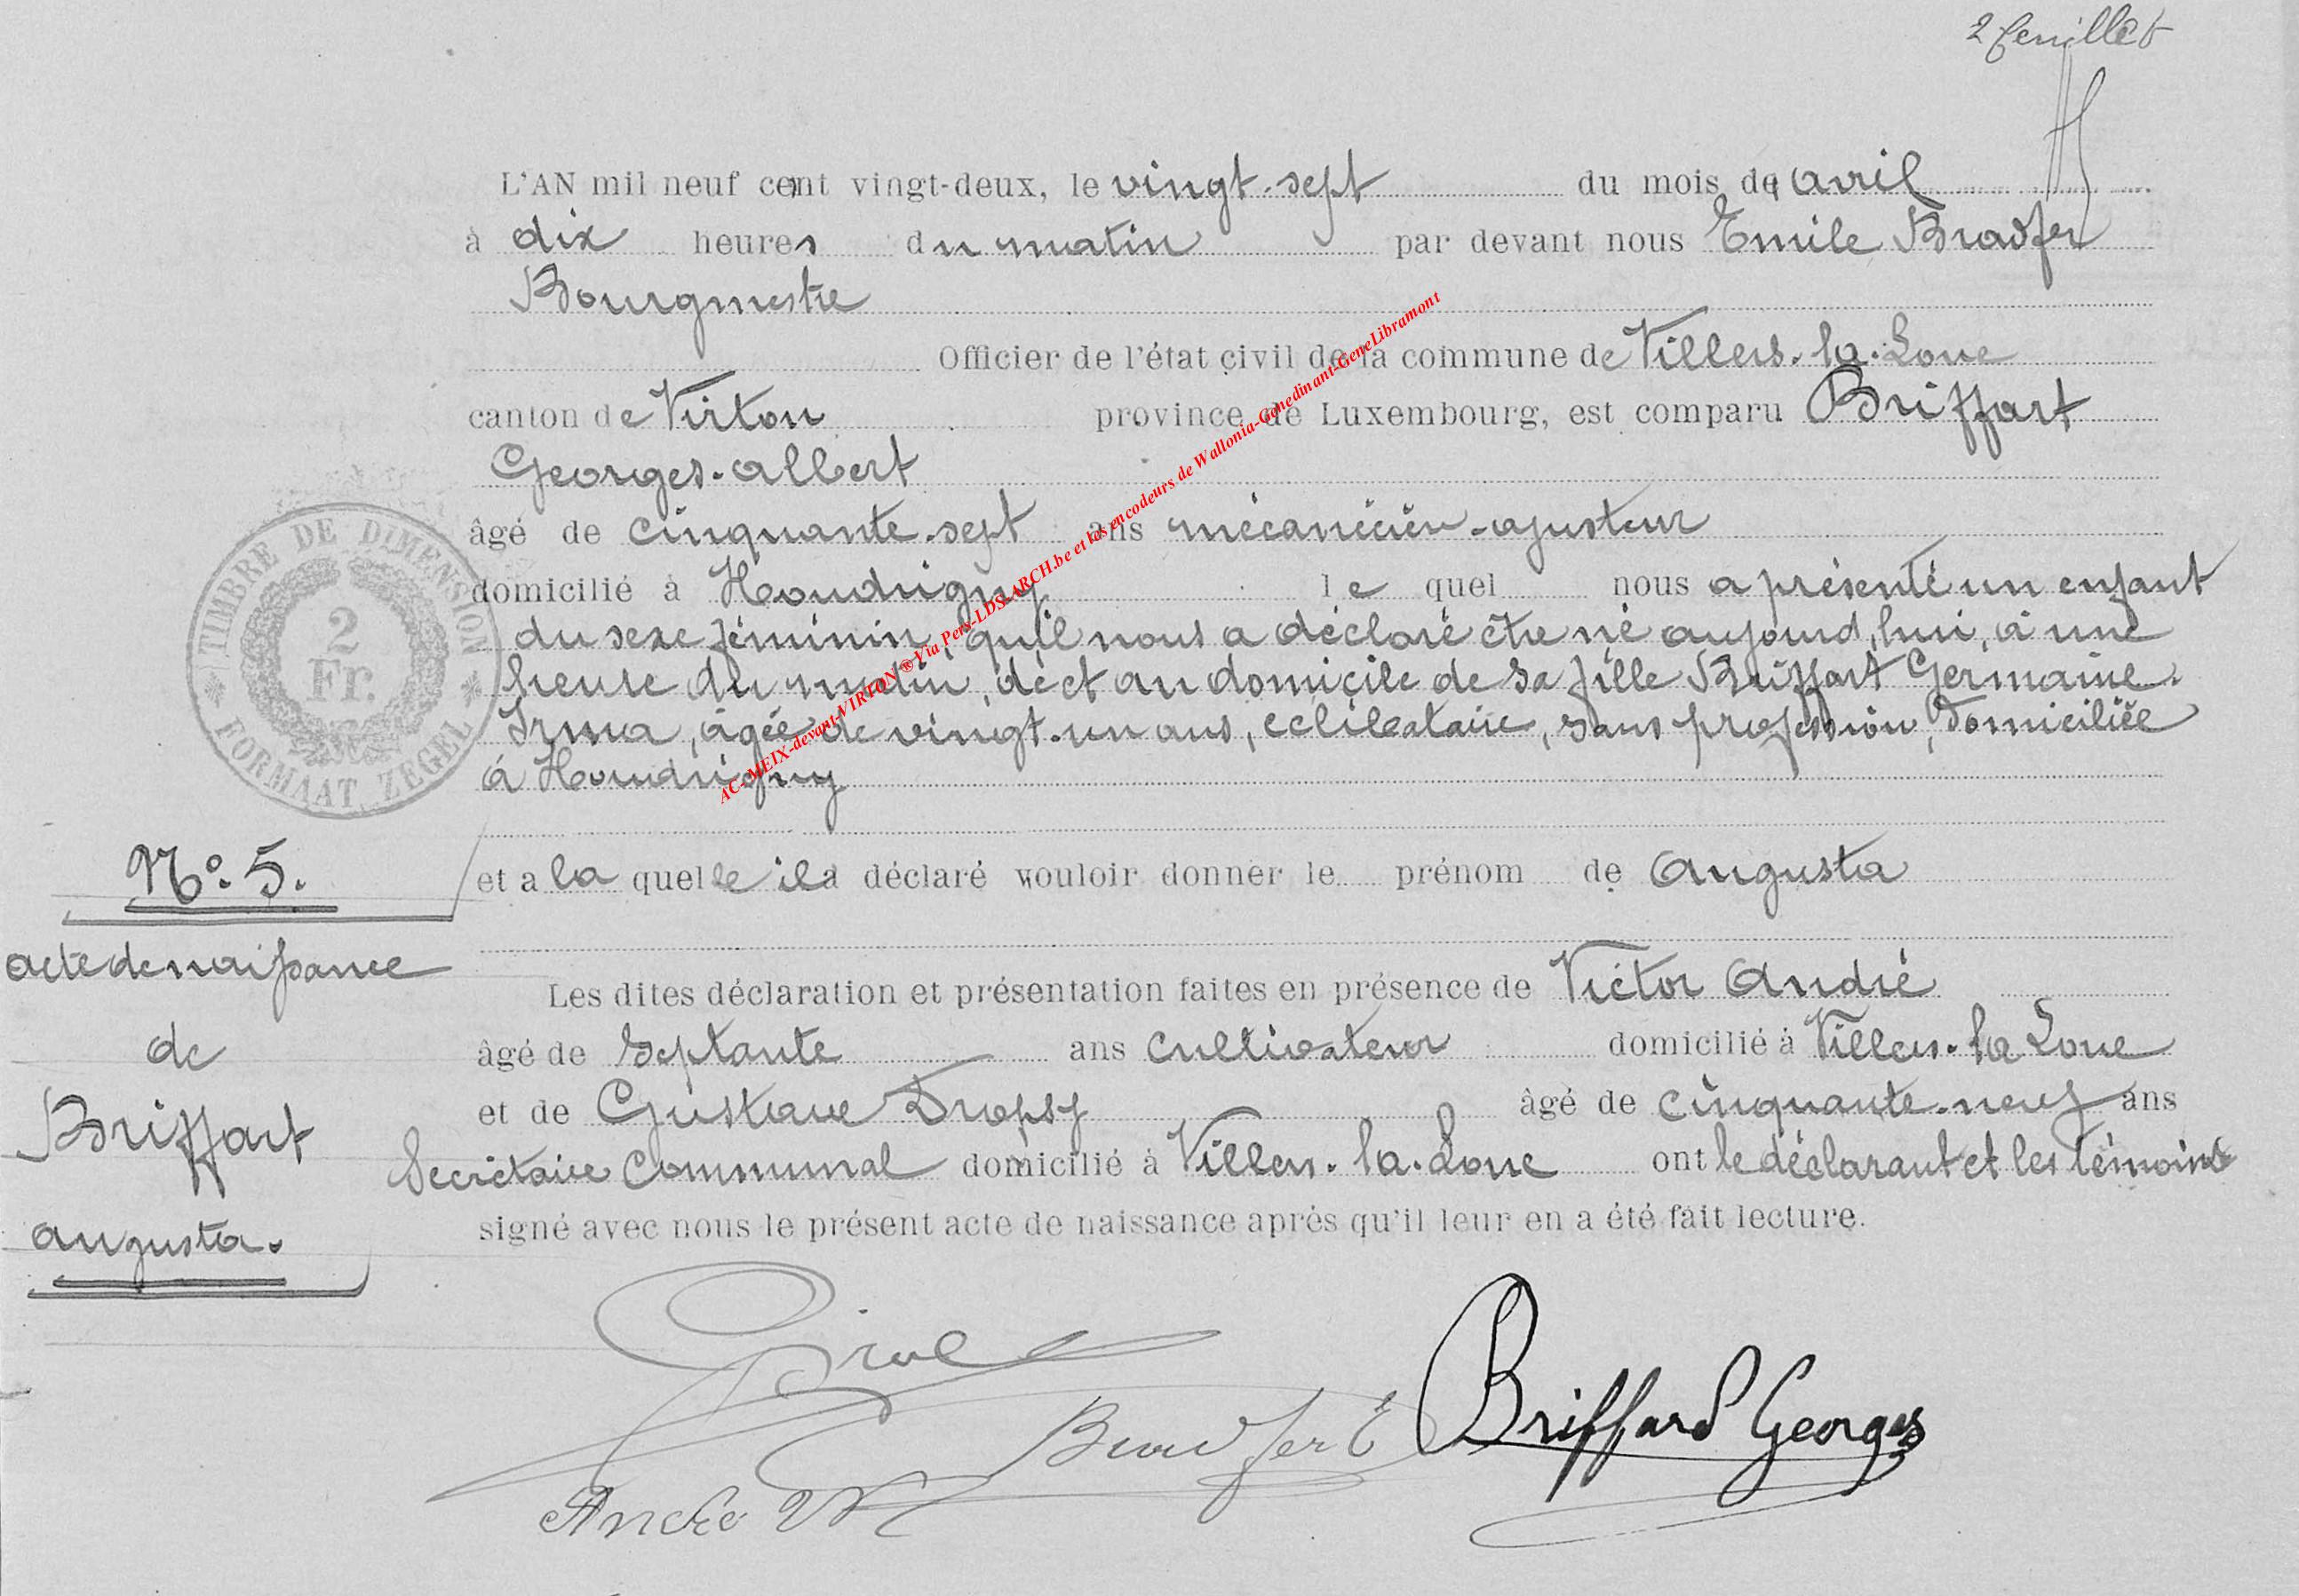 2 feuillet
L'AN mil neuf cent vingt-deux, le vingt-sept du mois de avril
à dix heures du matin par devant nous Emile Bradfer
Bourgmestre
Officier de l'état civil de la commune de Villers-la-Loue
canton de Virton province de Luxembourg, est comparu Briffart
Georges-Albert
âgé de cinquante-sept ans mécanicien-ajusteur
domicilié à Houdrigny le quel nous a présenté un enfant
du sexe féminin, qu'il nous a déclaré être né aujourd'hui, à une
heure du matin, déct au domicile de sa fille Briffart Germaine-
Irma, âgée de vingt-un ans, célibataire, sans profession, domiciliée
à Houdrigny
et a la quelle il a déclaré wouloir donner le prénom de Augusta
Les dites déclaration et présentation faites en présence de Victor André
âgé de septante ans cultivateur domicilié à Villers-la Loue
et de Gustave Dropsy âgé de cinquante-neuf ans
Secrétaire communal domicilié à Villers-la-Loue ont le déclarant et les témoins
signé avec nous le présent acte de naissance après qu'il leur en a été fait lecture.
TIMBRE DE DIMENSION
2
Fr.
FORMAAT ZEGEL
No. 5.
acte de naissance
de
Briffart
Augusta.
Bradfer E
Briffard Georges
André V
AC-MEIX-devant-VIRTON ® Via Pers-LDS-ARCH.be et les encodeurs de Wallonia-Genedinant-GeneLibramont